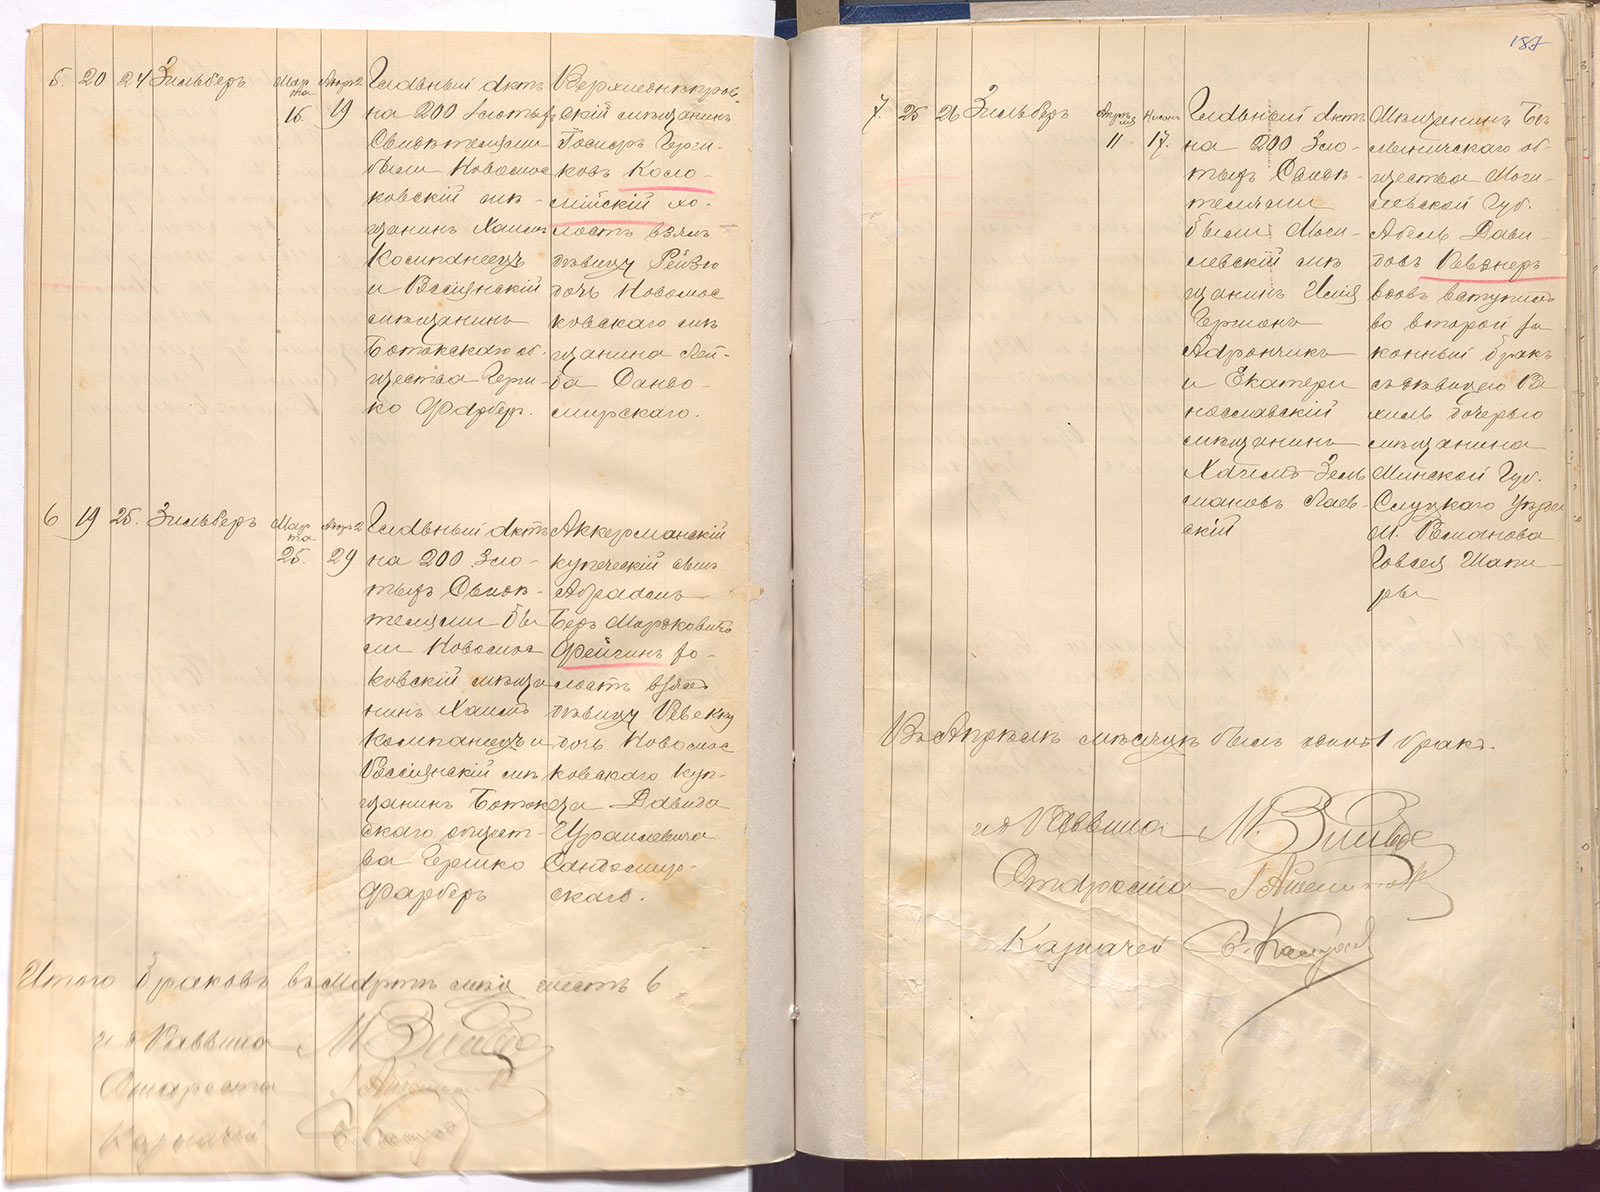 5. 20 24 Зильберъ Мар та 16 Апрѣ 19
Главный актъ
на 200 злотыхъ
Свидѣтелями
были Новомос
ковскій мѣ-
щанинъ Хаимъ
Компанеецъ
и Россіянскій
мѣщанинъ
Ботокскаго об.
щества Герш-
ко Фарбер.
Верхнеднѣпров.
скій мѣщанинъ
ковъ Коло-
мійскій хо.
лостъ взялъ
дѣвицу Рейзю
дочь Новомос
ковскаго мѣ
щанина Лей-
ба Сандо-
мирскаго.
6 19 25. Зильберъ Мар та 25. Апрѣ 29
Главный актъ
на 200 зло-
тыхъ Свидѣ-
телями бы
ли Новомос
ковскій мѣща
нинъ Хаимъ
Компанеецъ и
Россіянскій мѣ
щанинъ Боток
скаго общест-
ва Гершко
Фарберъ
Аккерманскій
купеческій сынъ
Абрамъ
Беръ Мордковичъ
Фейгинъ хо-
лостъ взялъ
дѣвицу Ревекку
дочь Новомос
ковскаго куп-
ца Давида
Израилевича
Сандомир-
скаго.
Итого браковъ въ Мартѣ мцѣ шесть 6
и д Раввина М. Зильбе
Староста
Казначей
187
7. 25 26 Зильберъ Апрѣля 11 17.
Главный актъ
на 200 зло-
тыхъ Свидѣ-
телями
были Моги-
левскій мѣ
щанинъ Илія
Гершонъ
Адрончикъ
и Екатери
нославскій
мѣщанинъ
Хаимъ Зель
мановъ Лаев-
скій
Мѣщанинъ Бѣ
лыничскаго об-
щества Моги-
левской Губ.
Абель Дави-
довъ Ревзнеръ
вдовъ вступилъ
во второй за
конный бракъ
съ дѣвицею Ра
хиль дочерью
мѣщанина
Минской Губ.
Слуцкаго Уѣзда
М. Романова
Говсея Шапи-
ры
Въ Апрѣлѣ мѣсяцѣ былъ одинъ 1 бракъ.
и д Раввина М. Зильбе
Староста
Казначей